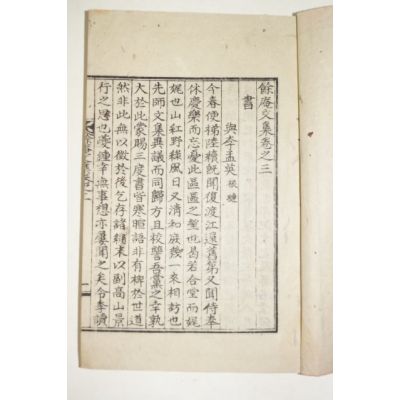 餘庵文集卷之三
書
與李孟英 根碰
今春便梯陸續旣聞復渡江還舊第又聞侍奉
休慶樂而忘憂此區區之望也曷若合堂而娓
娓也山紅野綠風日又清和庶幾一來相訪也
先師文集異議而同歸方且校讐吾黨之幸孰
大於此蒙賜三度書皆寒暄語非有裨於世道
然非此無以徵於後乞存諸糊末以副高山景
行之思也憂鍾幸無事想亦屢聞之矣令季讀